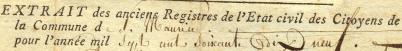 EXTRAIT des anciens Registres de l'Etat civil des Citoyens de
la Commune d S. Maurice
pour l'année mil Sept cent Soixante Dix neuf.